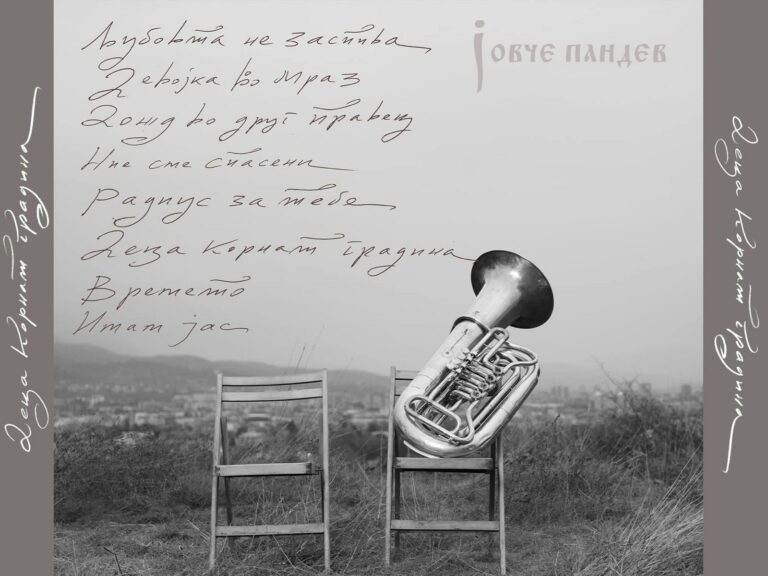 Јовче Пандев
Љубовта не заспива
Девојка во мраз
Дожд во друг правец
Ние сме спасени
Радиус за тебе
Деца корнат градина
Времето
Итам јас
Деца корнат градина
Деца корнат градина